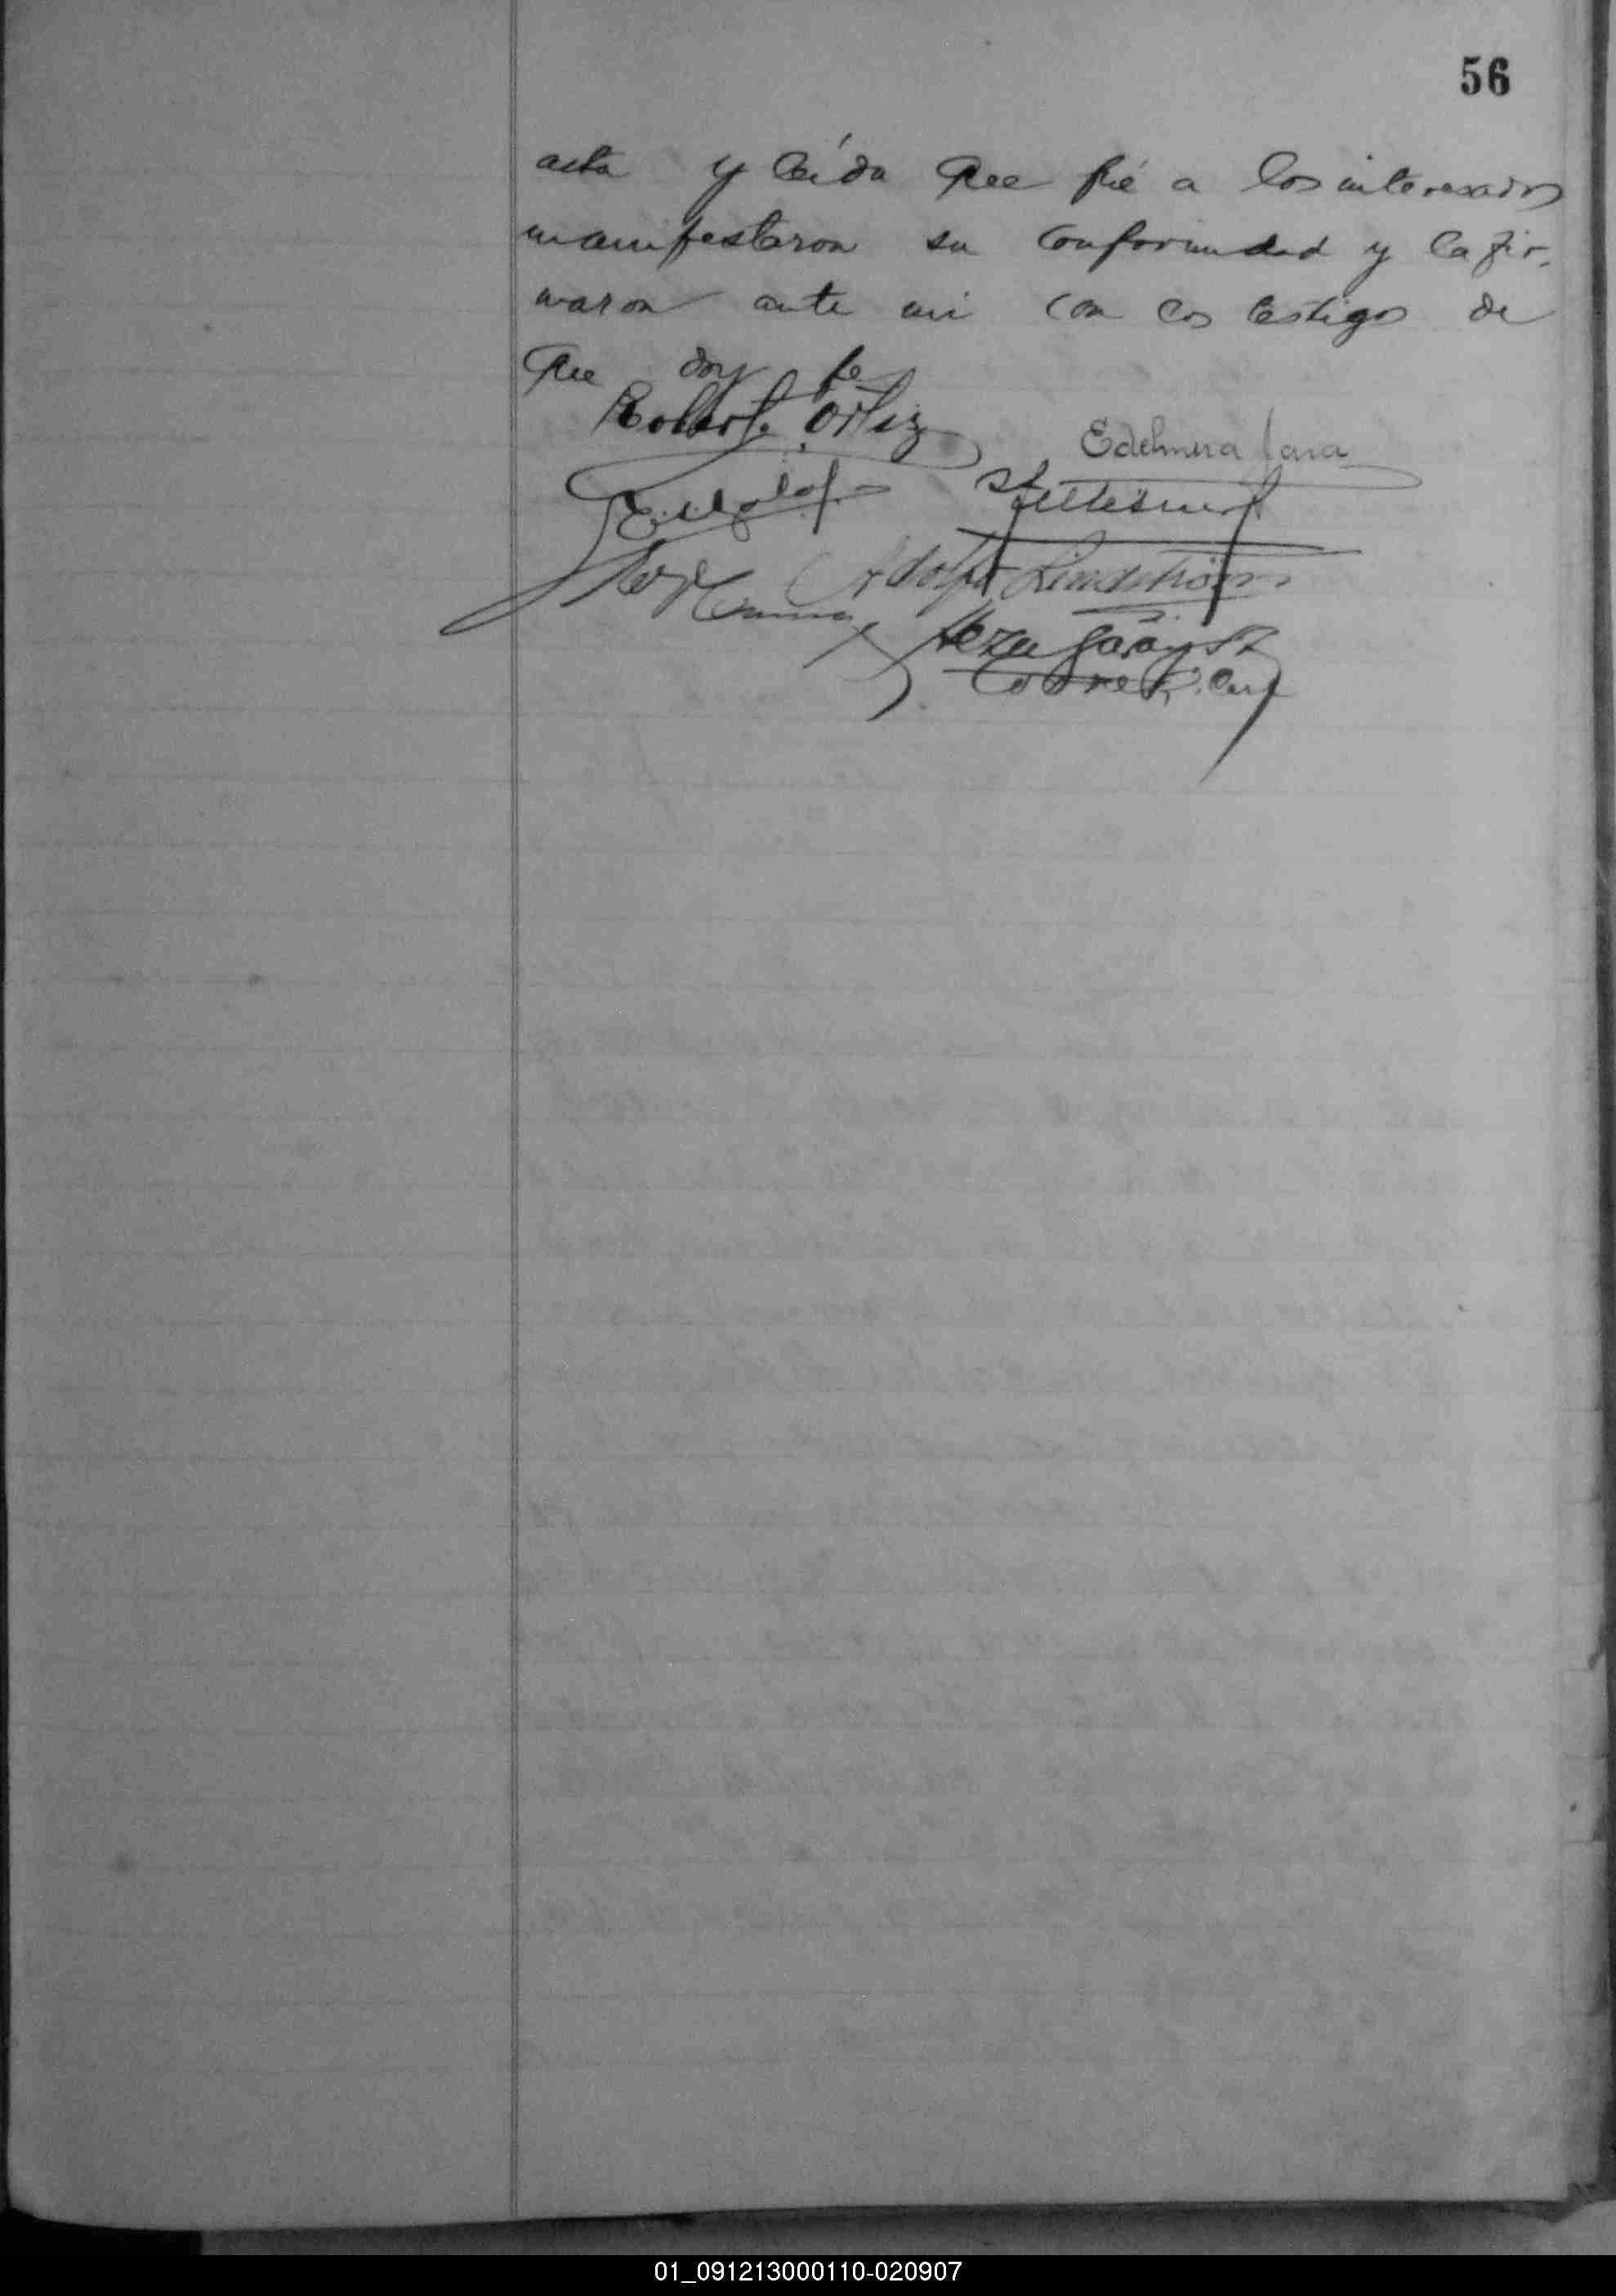 56
acta y leída que fué a los interesados
manifestaron su conformidad y la fir-
maron ante mi con los testigos de
que doy fe
Roberto Ortiz
Edelmira Lara
Adolfo Lindström
Garay
01_091213000110-020907